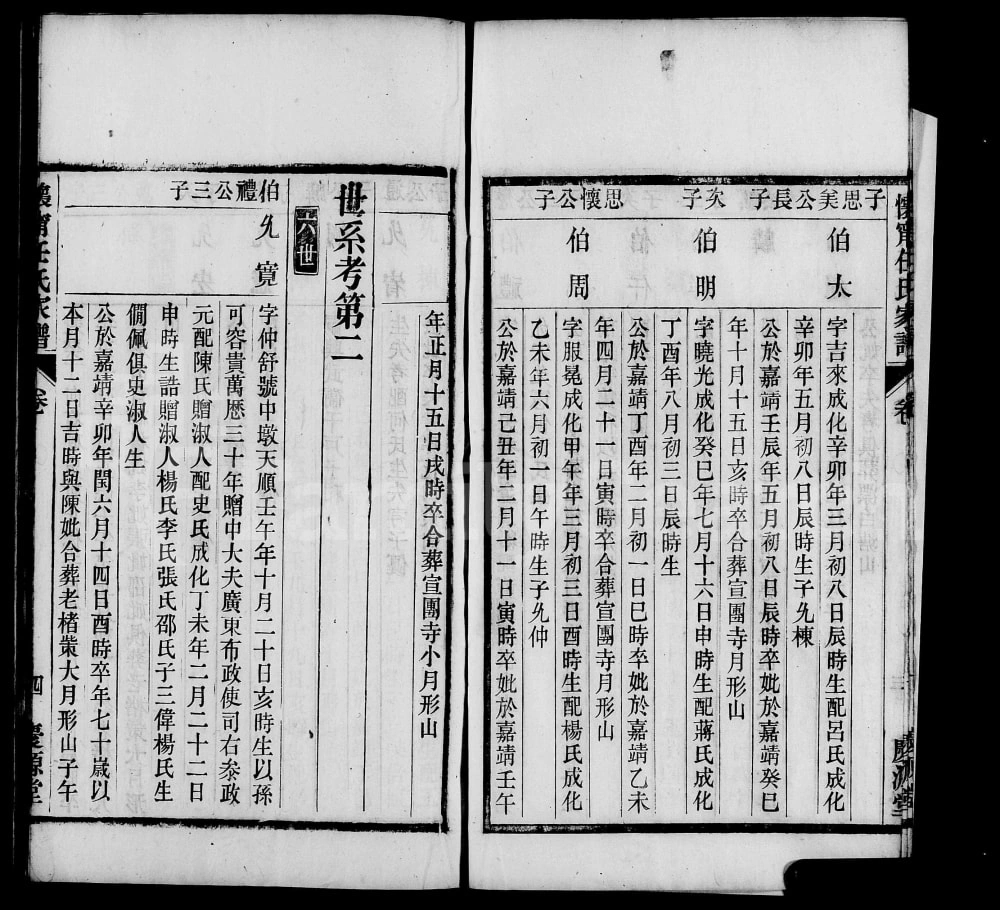 懷甯任氏家譜
卷
三
慶源堂
思美公長子
伯太
字吉來成化辛卯年三月初八日辰時生配呂氏成化
辛卯年五月初八日辰時生子允棟
公於嘉靖壬辰年五月初八日辰時卒妣於嘉靖癸巳
年十月十五日亥時卒合葬宣團寺月形山
次子
伯明
字曉光成化癸巳年七月十六日申時生配蔣氏成化
丁酉年八月初三日辰時生
公於嘉靖丁酉年二月初一日巳時卒妣於嘉靖乙未
年四月二十一日寅時卒合葬宣團寺月形山
思懷公子
伯周
字服冕成化甲午年三月初三日酉時生配楊氏成化
乙未年六月初一日午時生子允仲
公於嘉靖己丑年二月十一日寅時卒妣於嘉靖壬午
年正月十五日戌時卒合葬宣團寺小月形山
世系考第二
六世
伯禮公三子
允寬
字仲舒號中墩天順壬午年十月二十日亥時生以孫
可容貴萬歷三十年贈中大夫廣東布政使司右叅政
元配陳氏贈淑人配史氏成化丁未年二月二十二日
申時生誥贈淑人楊氏李氏張氏邵氏子三偉楊氏生
僩佩俱史淑人生
公於嘉靖辛卯年閏六月十四日酉時卒年七十歲以
本月十二日吉時與陳妣合葬老楮葉大月形山子午
懷甯任氏家譜
卷
四
慶源堂